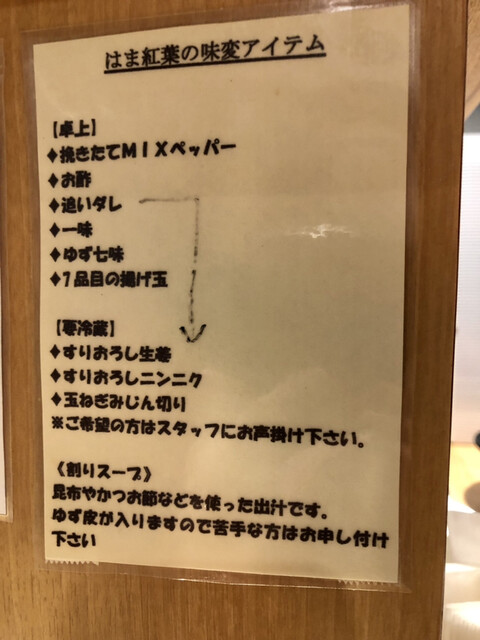 はま紅葉の味変アイテム
【卓上】
♦挽きたてMIXペッパー
♦お酢
♦追いダレ
♦一味
♦ゆず七味
♦7品目の揚げ玉
【要冷蔵】
♦すりおろし生姜
♦すりおろしニンニク
♦玉ねぎみじん切り
※ご希望の方はスタッフにお声掛け下さい。
《割りスープ》
昆布やかつお節などを使った出汁です。
ゆず皮が入りますので苦手な方はお申し付け
下さい